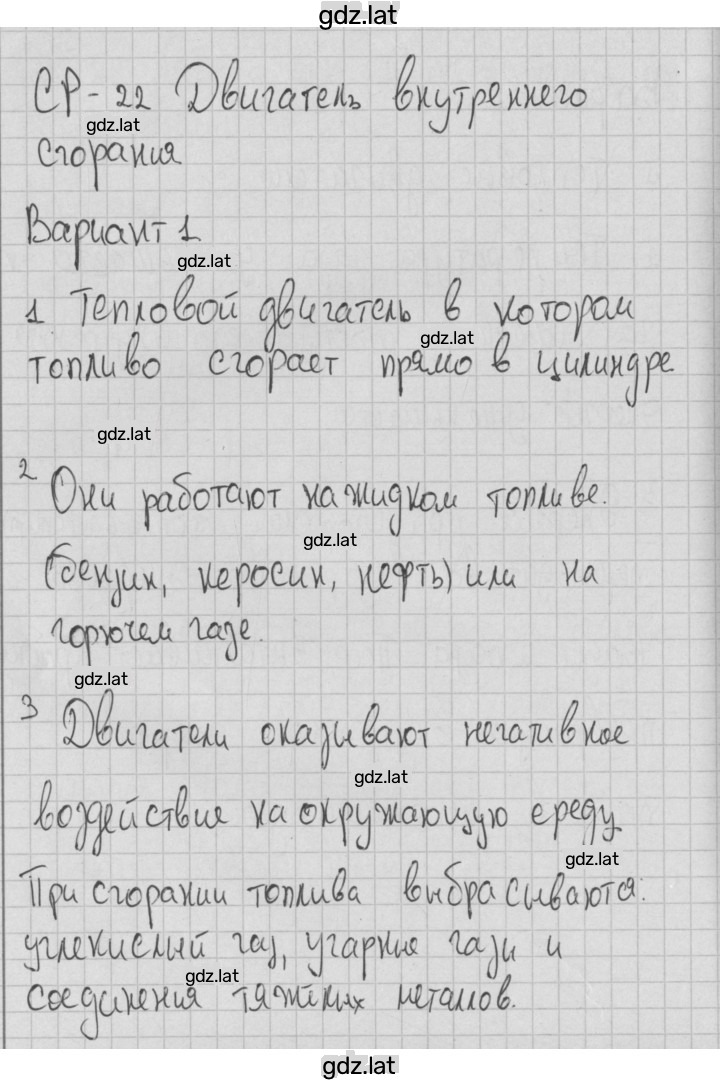 gdz.lat
СР-22 Двигатель внутреннего
gdz.lat
сгорания
Вариант 1
gdz.lat
1 Тепловой двигатель в котором
gdz.lat
топливо сгорает прямо в цилиндре
gdz.lat
2 Они работают на жидком топливе.
gdz.lat
(бензин, керосин, нефть) или на
горючем газе.
gdz.lat
3 Двигатели оказывают негативное
gdz.lat
воздействие на окружающую среду
gdz.lat
При сгорании топлива выбрасываются:
углекислый газ, угарные газы и
gdz.lat
соединения тяжёлых металлов.
gdz.lat